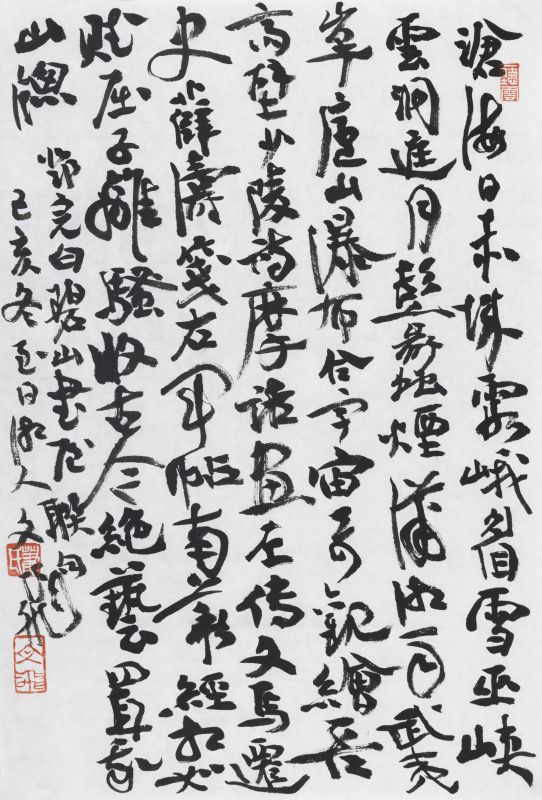 滄海日赤城霞峨眉雪巫峽
雲洞庭月彭蠡煙瀟湘雨武夷
峰廬山瀑布合宇宙奇觀繪吾
齋壁少陵詩摩詰畫左傳文馬遷
史薛濤箋右軍帖南華經相如
賦屈子離騷收古今絕藝置我
山窗
鄧完白碧山書屋聯句
己亥冬至日湘人文